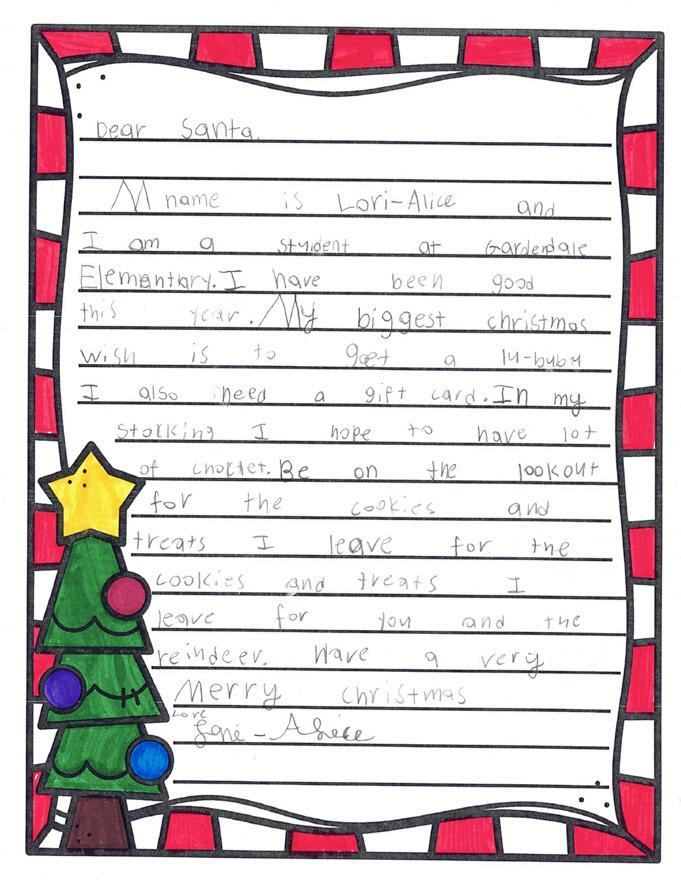 Dear Santa.
M name is Lori-Alice and
I am a styident at Gardendale
Elemantary. I have been good
this year. My biggest christmas
wish is to get a lu-bubu
I also need a gift card. In my
stolking I hope to have lot
of choklet. Be on the lookout
for the cookies and
treats I leave for the
cookies and treats I
leave for you and the
reindeer. Have a very
Merry christmas
Love
Lori-Alice